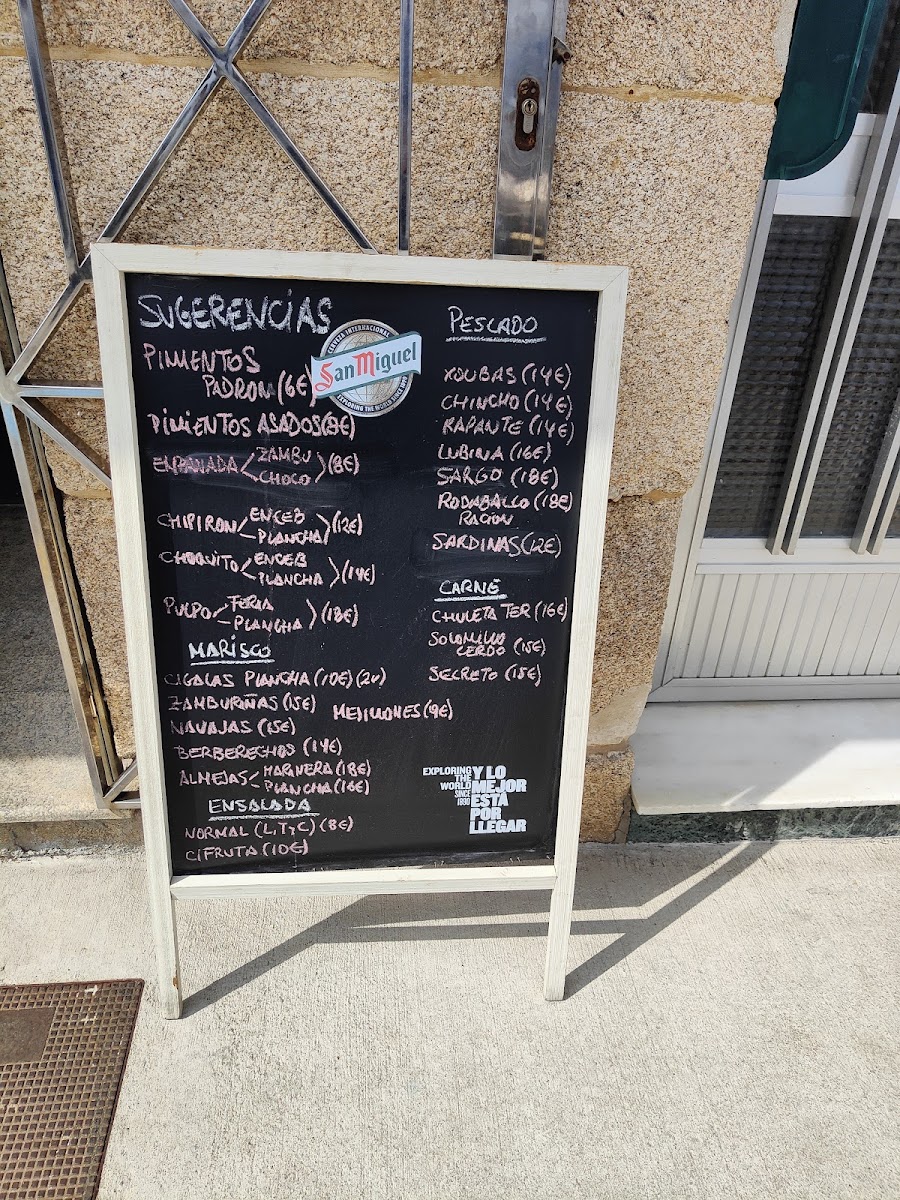 SUGERENCIAS
PIMIENTOS
PADRON (6€)
PIMIENTOS ASADOS (8€)
EMPANADA < ZAMBU
CHOCO > (8€)
CHIPIRON < ENCEB
PLANCHA > (12€)
CHOQUITO < ENCEB
PLANCHA > (14€)
PULPO < FERIA
PLANCHA > (18€)
MARISCO
CIGALAS PLANCHA (10€) (2U)
ZAMBURIÑAS (15€)
MEJILLONES (9€)
NAVAJAS (15€)
BERBERECHOS (14€)
ALMEJAS < MARINERA (18€)
PLANCHA (16€)
ENSALADA
NORMAL (L,T,C) (8€)
C/FRUTA (10€)
CERVEZA INTERNACIONAL
San Miguel
EXPLORING THE WORLD SINCE 1890
PESCADO
XOUBAS (14€)
CHINCHO (14€)
RAPANTE (14€)
LUBINA (16€)
SARGO (18€)
RODABALLO (18€)
RACION
SARDINAS (12€)
CARNE
CHULETA TER (16€)
SOLOMILLO
CERDO (15€)
SECRETO (15€)
EXPLORING
THE
WORLD
SINCE
1890
Y LO
MEJOR
ESTÁ
POR
LLEGAR